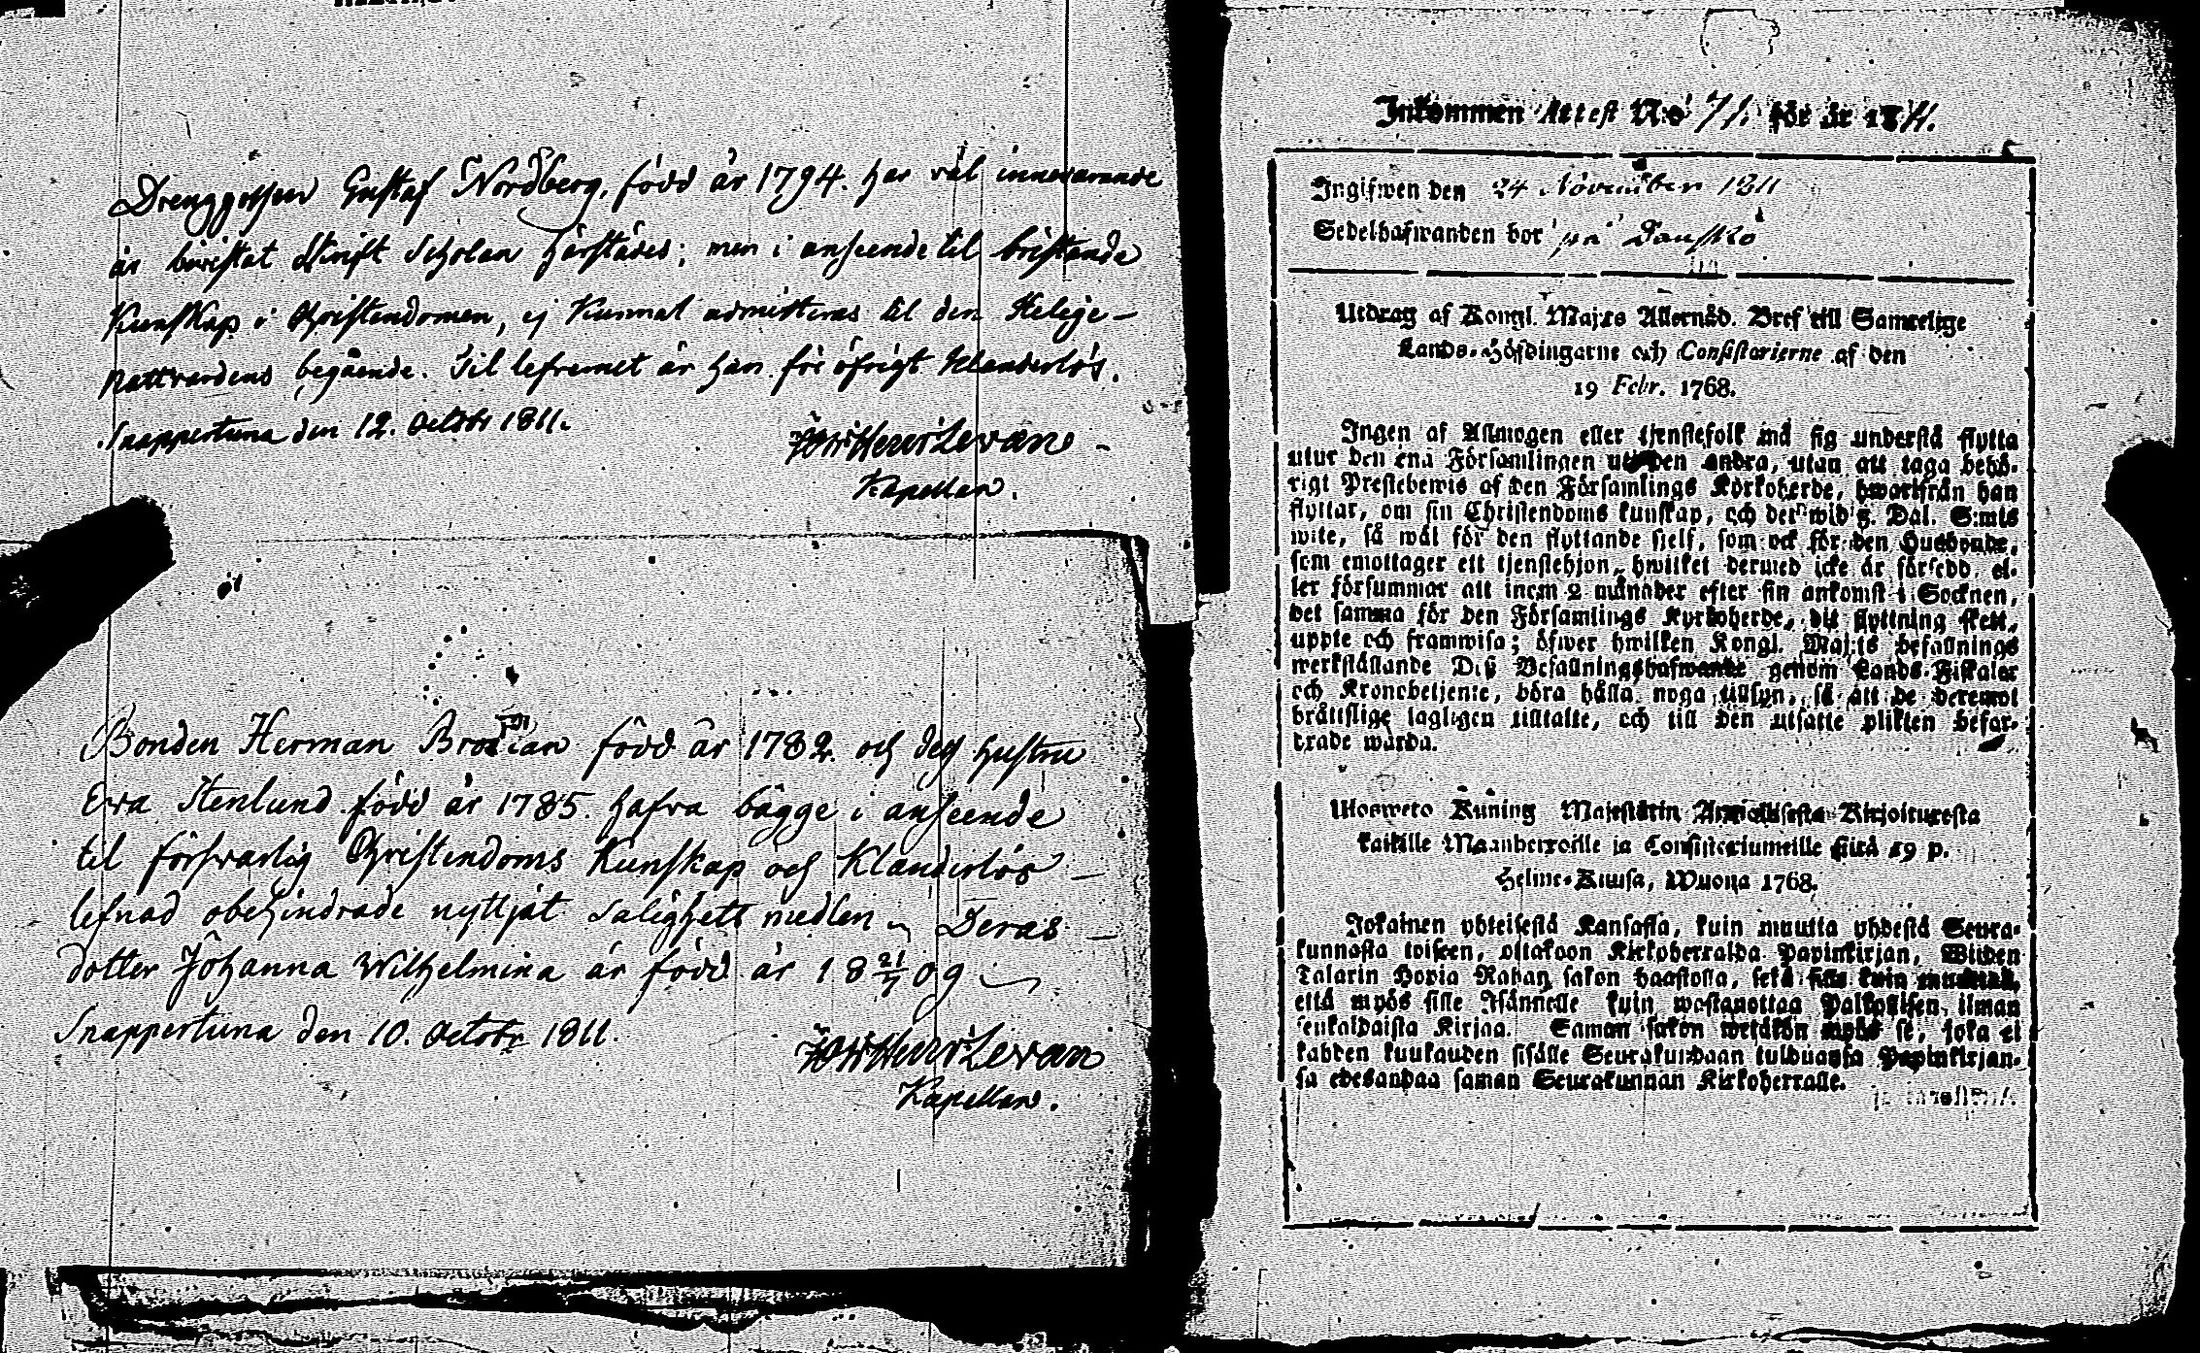 Drenggossen Gustaf Nordberg, född år 1794. har väl innevarande
år bevistat Skrift Scholan härstädes; men i anseende til bristande
Kunskap i Christendomen, ej kunnat admitteras til den Helige
Nattvardens begående. Til lefvernet är han för öfrigt klanderlös.
Snappertuna den 12. Octobr 1811.
Levan
Kapellan.
Bonden Herman Brodian född år 1782. och dess hustru
Eva Stenlund född år 1785. hafva bägge i anseende
til försvarlig Christendoms Kunskap och Klanderlös
lefnad obehindrade nyttjat salighets medlen. Deras
dotter Johanna Wilhelmina är född år 18 21/7 09
Snappertuna den 10. Octobr 1811.
Levan
Kapellan.
Inkommen Attest N:o 71. för år 1811.
Ingifwen den 24 November 1811
Sedelhafwanden bor på Danskö
Utdrag af Kongl. Maj:ts Allernåd. Bref till Samtelige
Lands-Höfdingarne och Consistorierne af den
19 Febr. 1768.
Ingen af Allmogen eller tjenstefolk må sig understå flytta
utur den ena Församlingen uti den andra, utan att taga behö-
rigt Prestebewis af den Församlings Kyrkoherde, hwarifrån han
flyttar, om sin Christendoms kunskap, och der wid 3. Dal. S:mts
wite, så wäl för den flyttande sielf, som ock för den Husbonde,
som emottager ett tjenstehjon, hwilket dermed icke är försedd, el-
ler försummar att inom 2 månader efter sin ankomst i Socknen,
det samma för den Församlings Kyrkoherde, dit flyttning skett,
uppte och framwisa; öfwer hwilken Kongl. Maj:ts befallnings
werkställande Dess Befallningshafwande genom Lands-Fiskaler
och Kronobetjente, böra hålla noga tillsyn, så att de deremot
bråttslige lagligen tilltalte, och till den utsatte plikten befor-
drade warda.
Ulosweto Kuning Majestätin Armollisesta Kirjoituxesta
kaikille Maanherroille ja Consistoriumeille siitä 19 p.
Helme-Kuusa, Wuonna 1768.
Jokainen yhteisestä Kansasta, kuin muutta yhdestä Seura-
kunnasta toiseen, ottakoon Kirkoherralda Papinkirjan, Wiiden
Talarin Hopia Rahan sakon haastolla, sekä sille kuin muuttaa,
että myös sille Isännelle kuin wastanottaa Palkollisen ilman
senkaldaista Kirjaa. Saman sakon wetäkön myös se, joka ei
kahden kuukauden sisälle Seurakundaan tulduansa Papinkirjan-
sa edesandaa saman Seurakunnan Kirkoherralle.